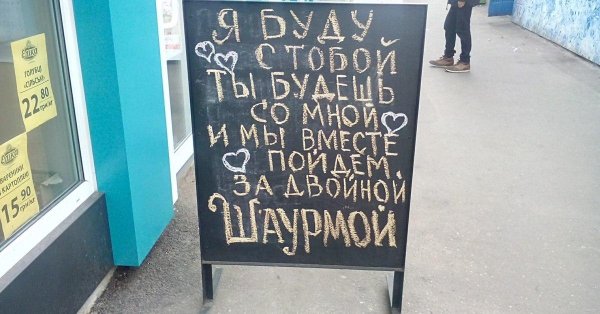 Я БУДУ
С ТОБОЙ
ТЫ БУДЕШЬ
СО МНОЙ
И МЫ ВМЕСТЕ
ПОЙДЕМ
ЗА ДВОЙНОЙ
ШАУРМОЙ
22 80
грн/кг
15 90
грн/кг